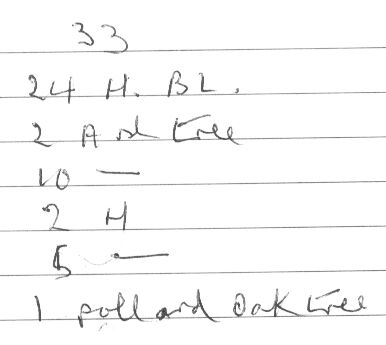 33
24 H. BL.
2 Ash tree
10 —
2 H
5 —
1 pollard Oak tree